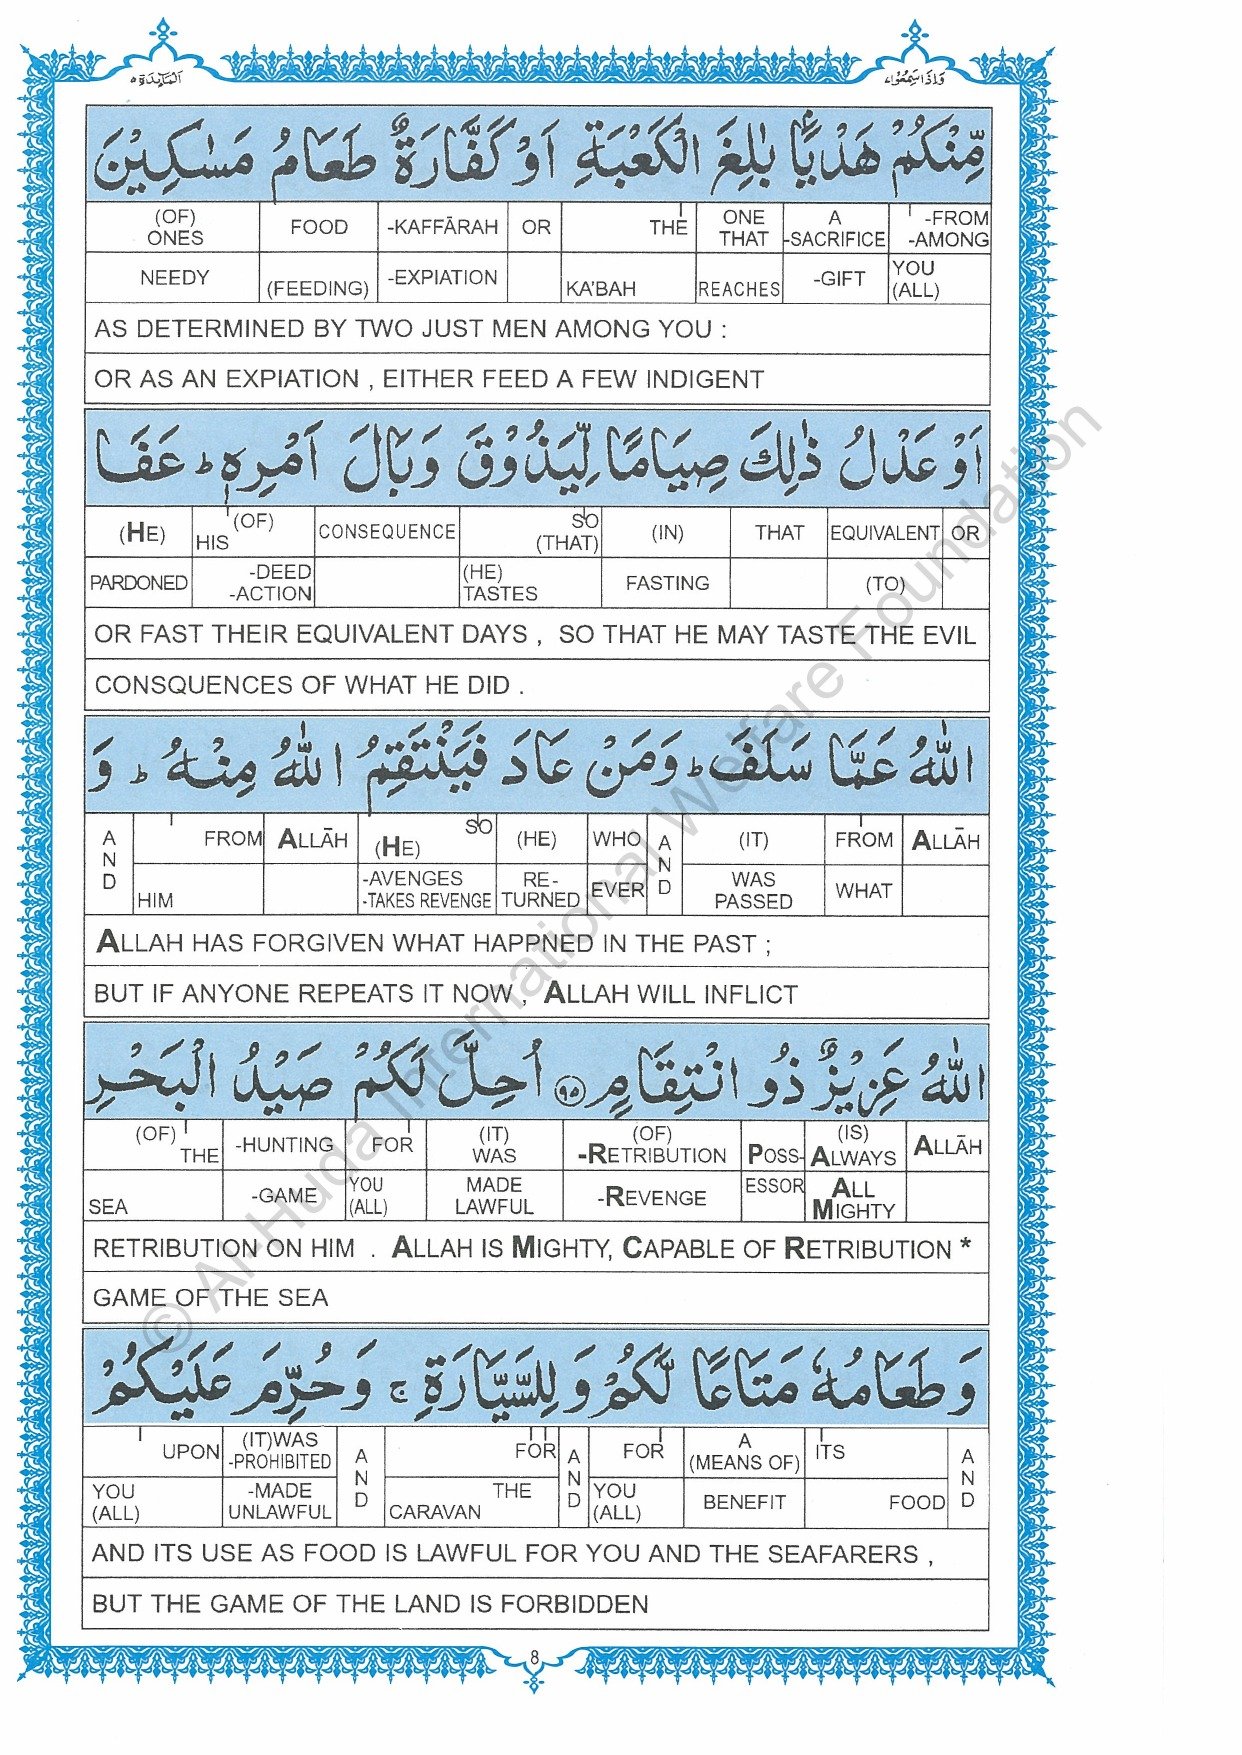 وَاِذَا سَمِعُوْا٧ الْمَآئِدَة ٥
مِّنْكُمْ هَدْيًۢا بٰلِغَ الْكَعْبَةِ اَوْ كَفَّارَةٌ طَعَامُ مَسٰكِيْنَ
(OF) ONES FOOD -KAFFĀRAH OR THE ONE THAT A -SACRIFICE -FROM -AMONG
NEEDY (FEEDING) -EXPIATION KA'BAH REACHES -GIFT YOU (ALL)
AS DETERMINED BY TWO JUST MEN AMONG YOU :
OR AS AN EXPIATION , EITHER FEED A FEW INDIGENT
اَوْ عَدْلُ ذٰلِكَ صِيَامًا لِّيَذُوْقَ وَبَالَ اَمْرِهٖ ؕ عَفَا
(HE) HIS (OF) CONSEQUENCE SO (THAT) (IN) THAT EQUIVALENT OR
PARDONED -DEED -ACTION (HE) TASTES FASTING (TO)
OR FAST THEIR EQUIVALENT DAYS , SO THAT HE MAY TASTE THE EVIL
CONSQUENCES OF WHAT HE DID .
اللّٰهُ عَمَّا سَلَفَ ؕ وَمَنْ عَادَ فَيَنْتَقِمُ اللّٰهُ مِنْهُ ؕ وَ
AND FROM ALLĀH SO (HE) (HE) WHO AND (IT) FROM ALLĀH
HIM -AVENGES -TAKES REVENGE RE-TURNED EVER WAS PASSED WHAT
ALLAH HAS FORGIVEN WHAT HAPPNED IN THE PAST ;
BUT IF ANYONE REPEATS IT NOW , ALLAH WILL INFLICT
اللّٰهُ عَزِيْزٌ ذُو انْتِقَامٍ ۝٩٥ اُحِلَّ لَكُمْ صَيْدُ الْبَحْرِ
(OF) THE -HUNTING FOR (IT) WAS (OF) -RETRIBUTION POSS- (IS) ALWAYS ALLĀH
SEA -GAME YOU (ALL) MADE LAWFUL -REVENGE ESSOR ALL MIGHTY
RETRIBUTION ON HIM . ALLAH IS MIGHTY, CAPABLE OF RETRIBUTION *
GAME OF THE SEA
وَطَعَامُهٗ مَتَاعًا لَّكُمْ وَلِلسَّيَّارَةِ ۚ وَحُرِّمَ عَلَيْكُمْ
UPON (IT)WAS -PROHIBITED AND FOR AND FOR A (MEANS OF) ITS AND
YOU (ALL) -MADE UNLAWFUL THE CARAVAN YOU (ALL) BENEFIT FOOD
AND ITS USE AS FOOD IS LAWFUL FOR YOU AND THE SEAFARERS ,
BUT THE GAME OF THE LAND IS FORBIDDEN
8
© Al-Huda International Welfare Foundation